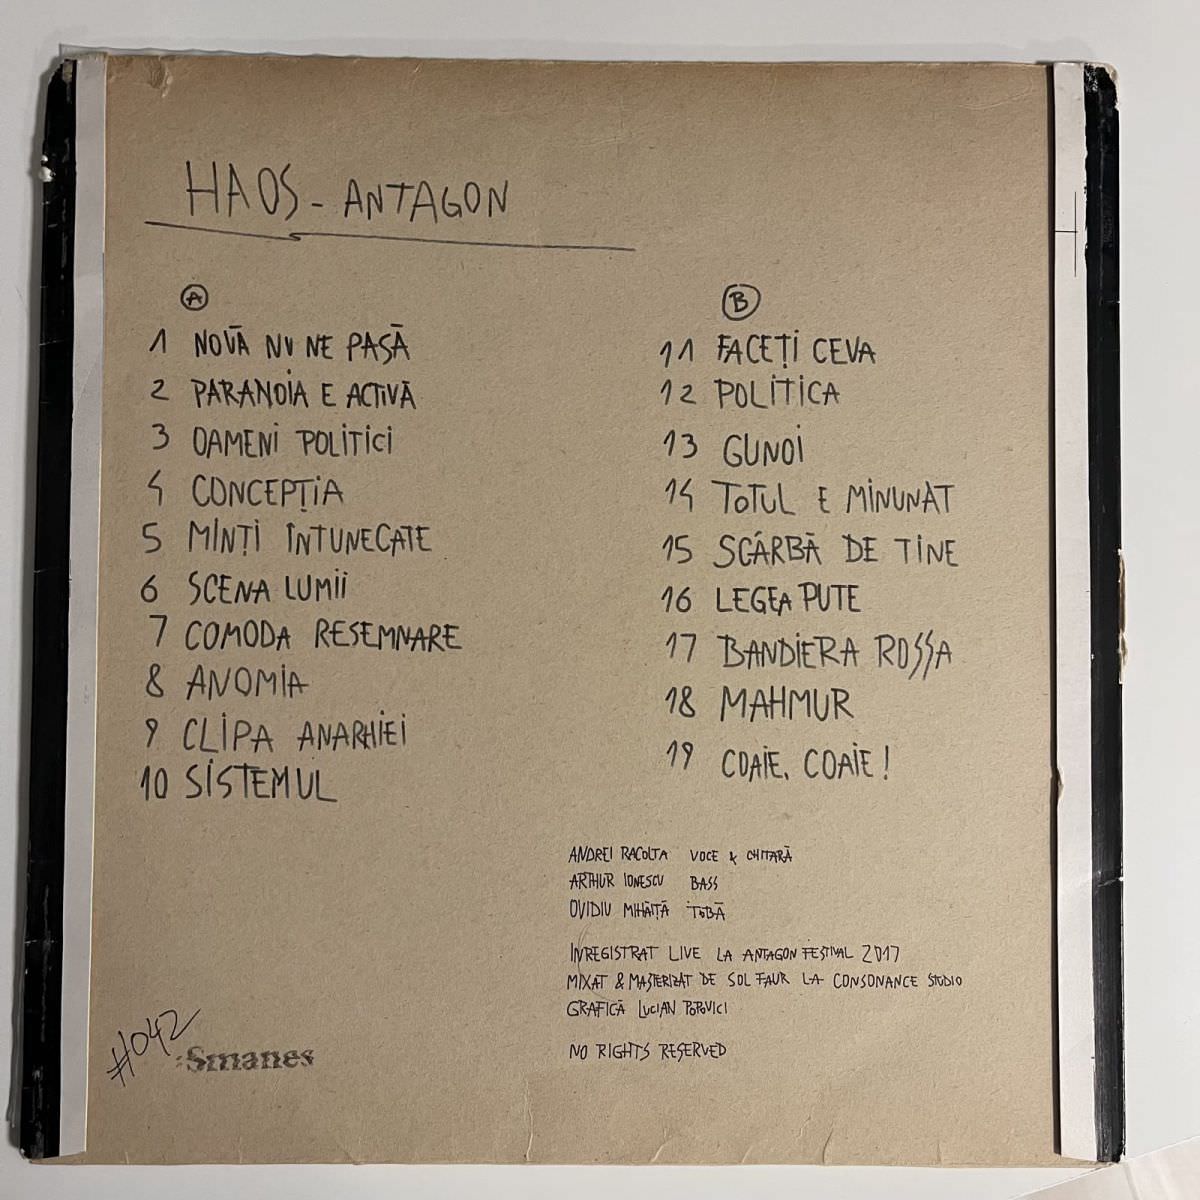 HAOS - ANTAGON
A
1 NOUĂ NU NE PASĂ
2 PARANOIA E ACTIVĂ
3 OAMENI POLITICI
4 CONCEPȚIA
5 MINȚI ÎNTUNECATE
6 SCENA LUMII
7 COMODA RESEMNARE
8 ANOMIA
9 CLIPA ANARHIEI
10 SISTEMUL
B
11 FACEȚI CEVA
12 POLITICA
13 GUNOI
14 TOTUL E MINUNAT
15 SCÂRBĂ DE TINE
16 LEGEA PUTE
17 BANDIERA ROSSA
18 MAHMUR
19 COAIE, COAIE!
ANDREI RACOLTA VOCE & CHITARĂ
ARTHUR IONESCU BASS
OVIDIU MIHĂIȚĂ TOBĂ
INREGISTRAT LIVE LA ANTAGON FESTIVAL 2017
MIXAT & MASTERIZAT DE SOL FAUR LA CONSONANCE STUDIO
GRAFICĂ LUCIAN POPOVICI
NO RIGHTS RESERVED
#042
:Smanes